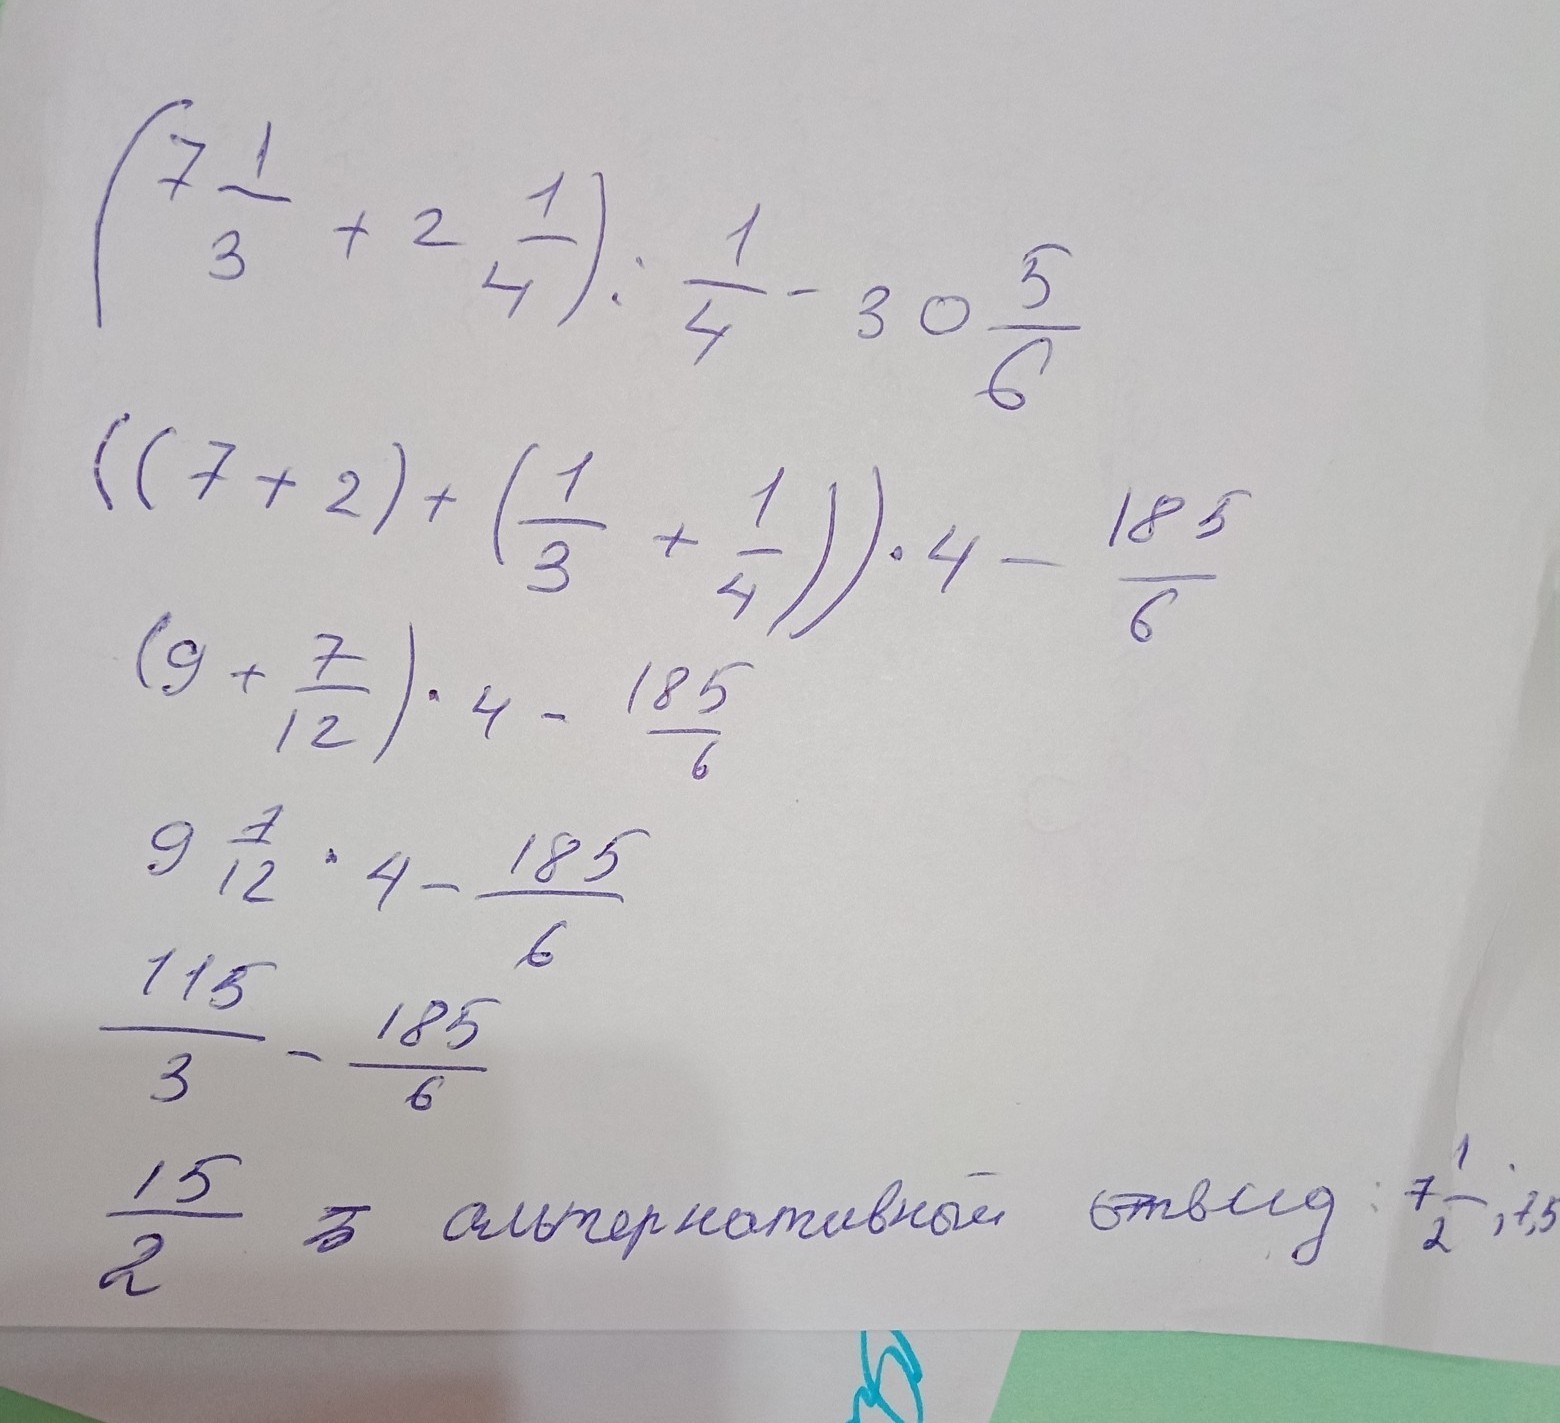 (7 1/3 + 2 1/4) : 1/4 - 30 5/6
((7 + 2) + (1/3 + 1/4)) · 4 - 185/6
(9 + 7/12) · 4 - 185/6
9 7/12 · 4 - 185/6
115/3 - 185/6
15/2 альтернативный вид: 7 1/2; 7,5